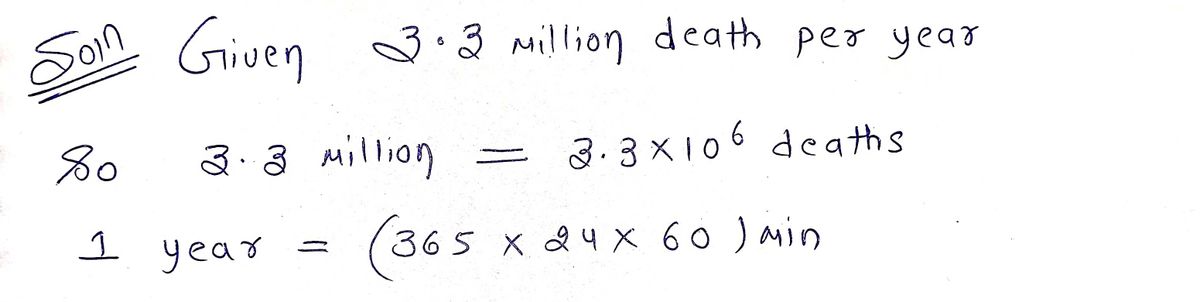 Soln Given 3.3 million death per year
So 3.3 million = 3.3 × 10⁶ deaths
1 year = (365 × 24 × 60) min